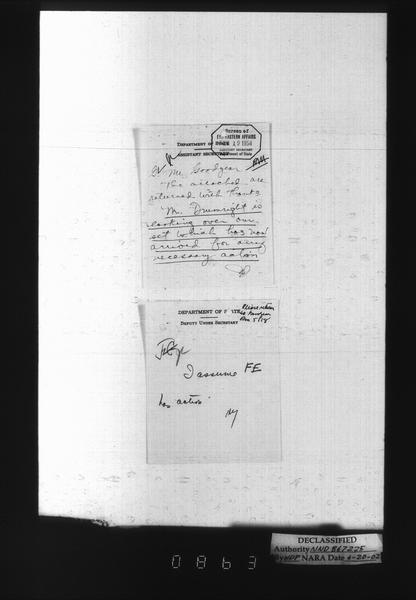 DEPARTMENT OF
ASSISTANT SECRETARY
Bureau of
FAR EASTERN AFFAIRS
19 1954
ASSISTANT SECRETARY
Department of State
Mr. Goodyear
The attached are
returned with thanks
Mr. Drumright is
looking over our
set which has now
arrived for any
necessary action
DEPARTMENT OF STATE
DEPUTY UNDER SECRETARY
I assume FE
has action
0863
DECLASSIFIED
Authority NND 867225
By WDP NARA Date 6-20-02